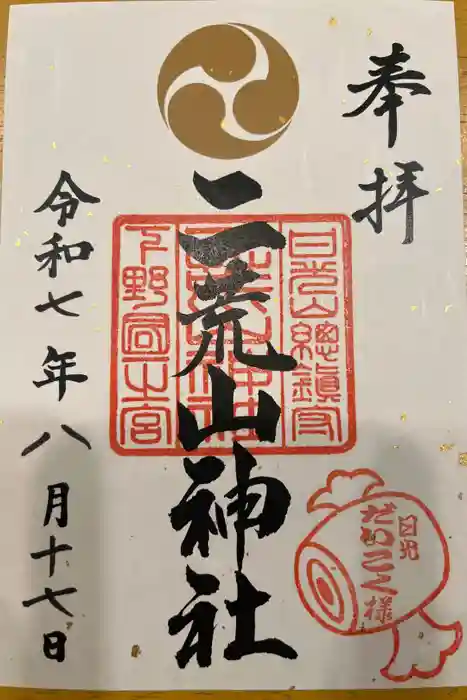 奉拝
二荒山神社
日光山總鎮守
下野國一之宮
二荒山神社
日光
だいこく様
令和七年八月十七日